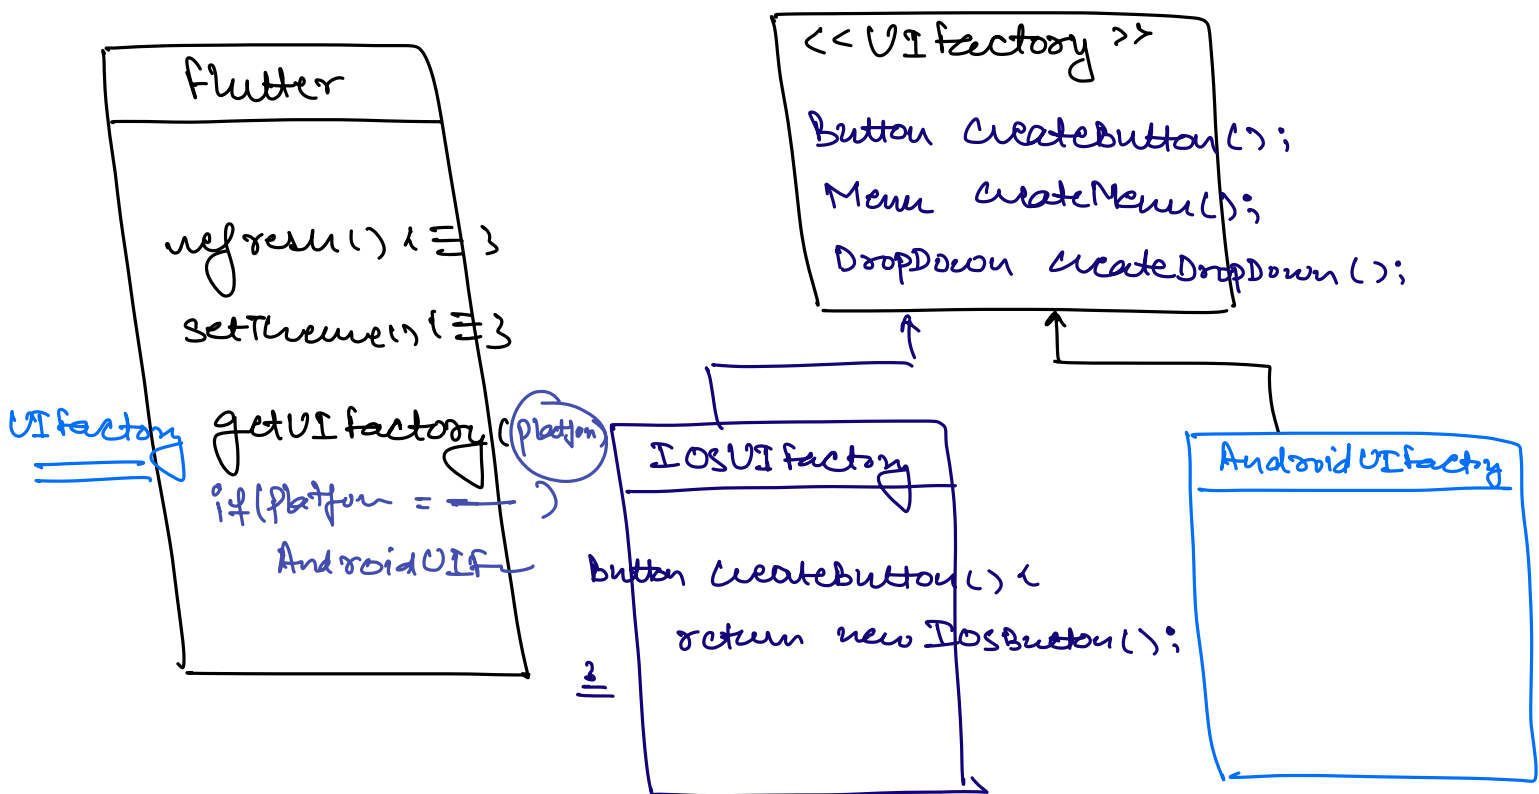 Flutter
refresh() { ≡ }
setTheme() { ≡ }
UIfactory getUIfactory (Platform)
if(Platform = — )
AndroidUIF
<< UIfactory >>
Button createButton();
Menu createMenu();
DropDown createDropDown();
IOSUIfactory
Button createButton() {
return new IOSButton();
}
AndroidUIfactory